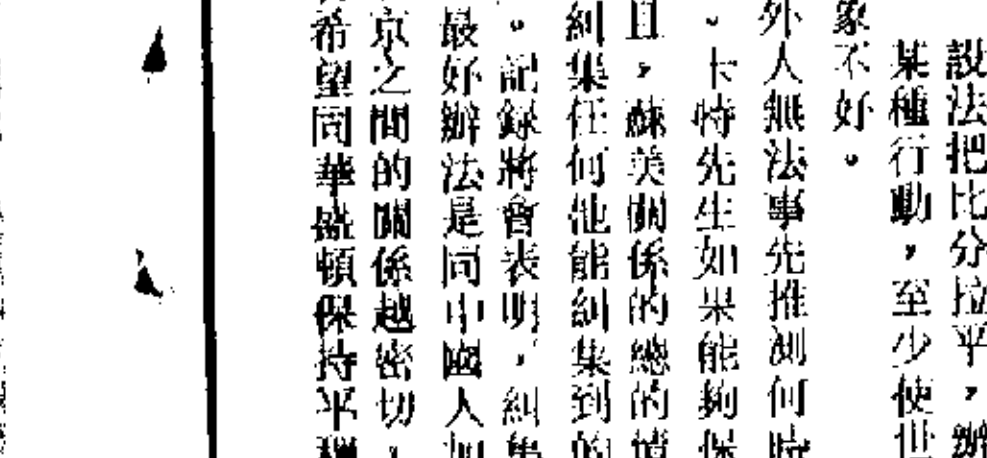 設法把比分拉平，辦
某種行動，至少使世
象不好。
外人無法事先推測何時
。卡特先生如果能夠保
且，蘇美關係的總的情
糾集任何他能糾集到的
。記錄將會表明，糾集
最好辦法是同中國人加
京之間的關係越密切，
希望同華盛頓保持平穩